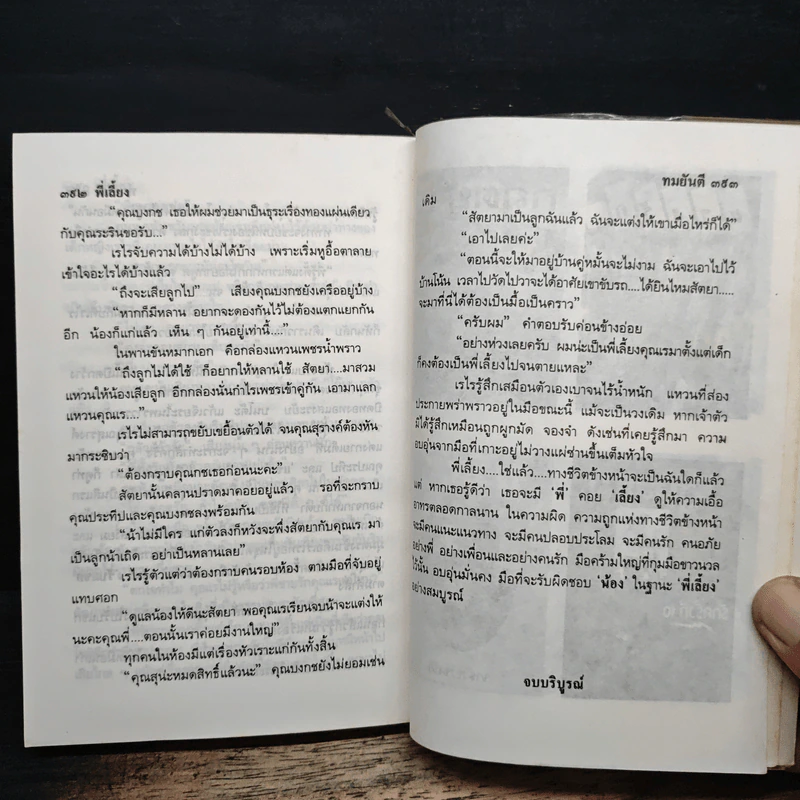 ๓๙๒ พี่เลี้ยง
"คุณบงกช เธอให้ผมช่วยมาเป็นธุระเรื่องทองแผ่นเดียว
กับคุณระรินขอรับ..."
เรไรจับความได้บ้างไม่ได้บ้าง เพราะเริ่มหูอื้อตาลาย
เข้าใจอะไรได้บ้างแล้ว
"ถึงจะเสียลูกไป" เสียงคุณบงกชยังเครืออยู่บ้าง
"หากก็มีหลาน อยากจะดองกันไว้ไม่ต้องแตกแยกกัน
อีก น้องก็แก่แล้ว เห็น ๆ กันอยู่เท่านี้...."
ในพานขันหมากเอก คือกล่องแหวนเพชรน้ำพราว
"ถึงลูกไม่ได้ใช้ ก็อยากให้หลานใช้ สัตยา....มาสวม
แหวนให้น้องเสียลูก อีกกล่องนั่นกำไรเพชรเข้าคู่กัน เอามาแลก
แหวนคุณเร...."
เรไรไม่สามารถขยับเขยื้อนตัวได้ จนคุณสุรางค์ต้องหัน
มากระซิบว่า
"ต้องกราบคุณกชเธอก่อนนะคะ"
สัตยานั้นคลานปราดมาคอยอยู่แล้ว รอที่จะกราบ
คุณประทีปและคุณบงกชลงพร้อมกัน
"น้าไม่มีใคร แก่ตัวลงก็หวังจะพึ่งสัตยากับคุณเร มา
เป็นลูกน้าเถิด อย่าเป็นหลานเลย"
เรไรรู้ตัวแต่ว่าต้องกราบคนรอบห้อง ตามมือที่จับอยู่
แทบศอก
"ดูแลน้องให้ดีนะสัตยา พอคุณเรเรียนจบน้าจะแต่งให้
นะคะคุณพี่....ตอนนั้นเราค่อยมีงานใหญ่"
ทุกคนในห้องมีแต่เรื่องหัวเราะแก่กันทั้งสิ้น
"คุณสุน่ะหมดสิทธิ์แล้วนะ" คุณบงกชยังไม่ยอมเช่น
ทมยันตี ๓๙๓
เดิม
"สัตยามาเป็นลูกฉันแล้ว ฉันจะแต่งให้เขาเมื่อไหร่ก็ได้"
"เอาไปเลยค่ะ"
"ตอนนี้จะให้มาอยู่บ้านคู่หมั้นจะไม่งาม ฉันจะเอาไปไว้
บ้านโน้น เวลาไปวัดไปวาจะได้อาศัยเขาขับรถ....ได้ยินไหมสัตยา.....
จะมาที่นี่ได้ต้องเป็นมื้อเป็นคราว"
"ครับผม" คำตอบรับค่อนข้างอ่อย
"อย่าห่วงเลยครับ ผมน่ะเป็นพี่เลี้ยงคุณเรมาตั้งแต่เด็ก
ก็คงต้องเป็นพี่เลี้ยงไปจนตายแหละ"
เรไรรู้สึกเสมือนตัวเองเบาจนไร้น้ำหนัก แหวนที่ส่อง
ประกายพร่าพราวอยู่ในมือขณะนี้ แม้จะเป็นวงเดิม หากเจ้าตัว
มิได้รู้สึกเหมือนถูกผูกมัด จองจำ ดังเช่นที่เคยรู้สึกมา ความ
อบอุ่นจากมือที่เกาะอยู่ไม่วางแผ่ซ่านขึ้นเต็มหัวใจ
พี่เลี้ยง....ใช่แล้ว....ทางชีวิตข้างหน้าจะเป็นฉันใดก็แล้ว
แต่ หากเธอรู้ดีว่า เธอจะมี 'พี่' คอย 'เลี้ยง' ดูให้ความเอื้อ
อาทรตลอดกาลนาน ในความผิด ความถูกแห่งทางชีวิตข้างหน้า
จะมีคนแนะแนวทาง จะมีคนปลอบประโลม จะมีคนรัก คนอภัย
อย่างพี่ อย่างเพื่อนและอย่างคนรัก มือคร้ามใหญ่ที่กุมมือขาวนวล
ไว้นั้น อบอุ่นมั่นคง มือที่จะรับผิดชอบ 'น้อง' ในฐานะ 'พี่เลี้ยง'
อย่างสมบูรณ์
จบบริบูรณ์